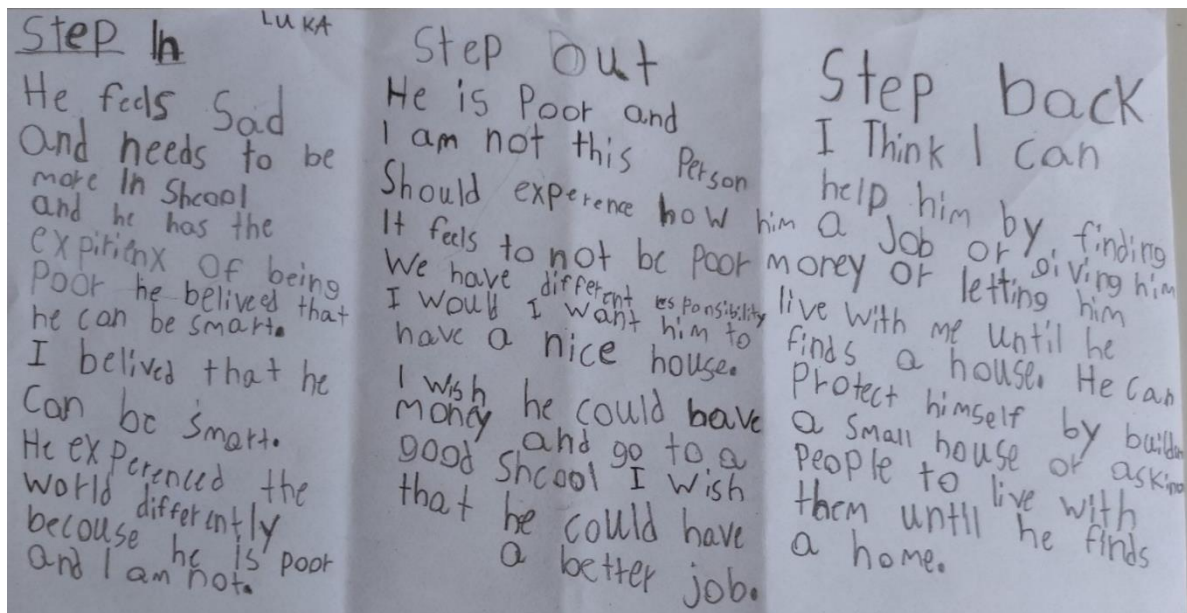 LUKA
Step In
He feels Sad
and needs to be
more In Shcool
and he has the
expirienx of being
Poor he beliveed that
he can be smart.
I belived that he
Can be smart.
He experenced the
world differently
becouse he is poor
and I am not.
Step Out
He is Poor and
I am not this Person
Should experence how
It feels to not be Poor
We have different responsibility
I would I want him to
have a nice house.
I wish he could have
money and go to a
good Shcool I wish
that he could have
a better job.
Step back
I Think I can
help him by finding
him a Job or giving him
money or letting him
live with me until he
finds a house. He can
Protect himself by buildin
a small house or asking
People to live with
them until he finds
a home.